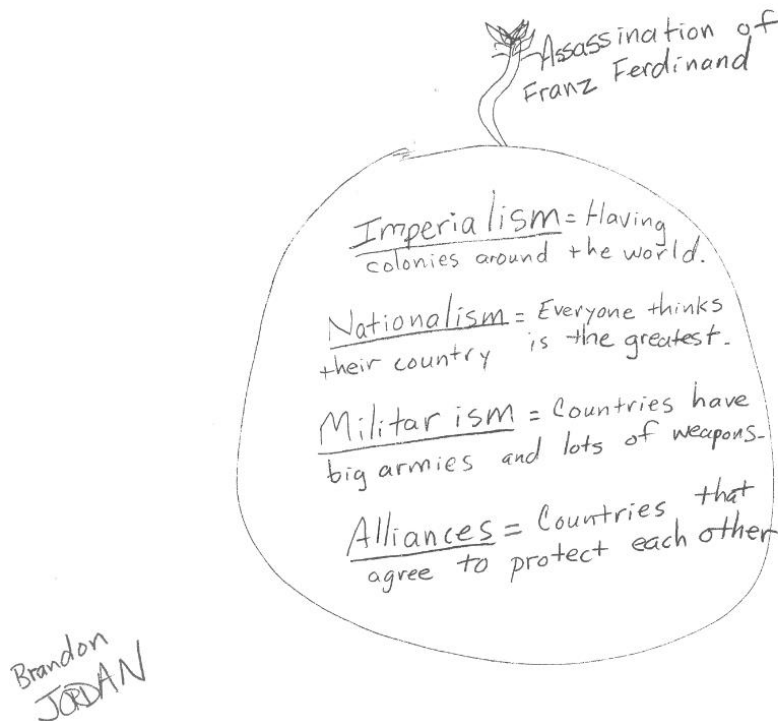 Assassination of
Franz Ferdinand
Imperialism = Having
colonies around the world.
Nationalism = Everyone thinks
their country is the greatest.
Militarism = Countries have
big armies and lots of weapons.
Alliances = Countries that
agree to protect each other
Brandon
JORDAN